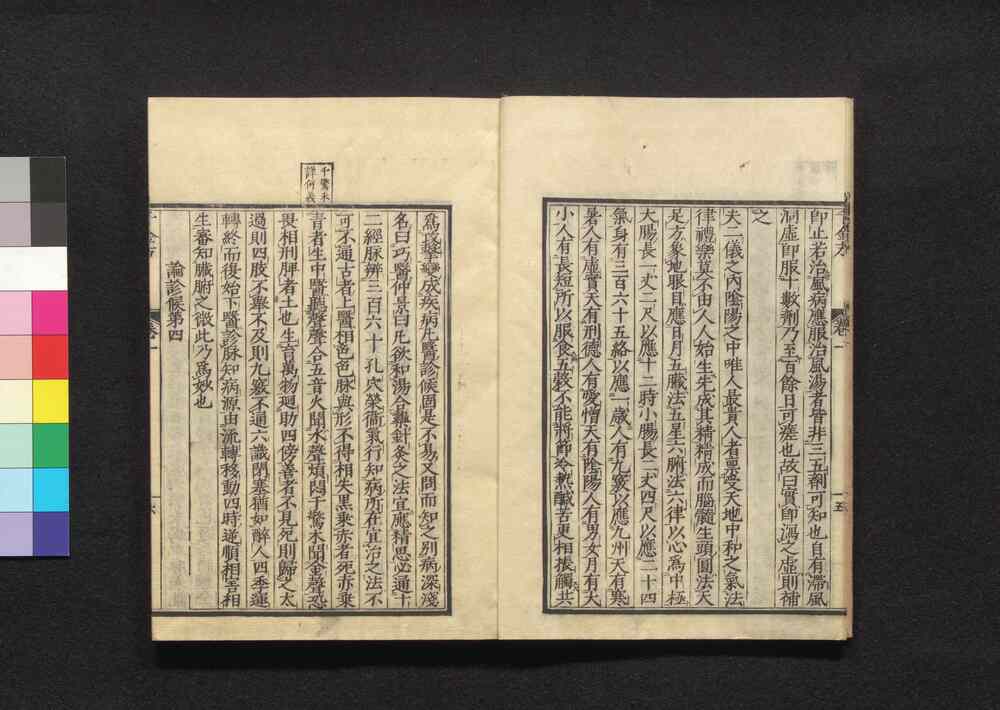 即止若治風病應服治風湯者皆非三五劑可知也自有滯風
洞虛即服十數劑乃至百餘日可瘥也故曰實即瀉之虛則補
之
夫二儀之內陰陽之中唯人最貴人者稟受天地中和之氣法
律禮樂莫不由人人始生先成其精精成而腦髓生頭圓法天
足方象地眼目應日月五臟法五星六腑法六律以心為中極
大腸長一丈二尺以應十二時小腸長二丈四尺以應二十四
氣身有三百六十五絡以應一歲人有九竅以應九州天有寒
暑人有虛實天有刑德人有愛憎天有陰陽人有男女月有大
小人有長短所以服食五穀不能將節冷熱醎苦更相振觸共
為攻擊變成疾病凡醫診候固是不易又問而知之別病深淺
名曰巧醫仲景曰凡欲和湯合藥針灸之法宜應精思必通十
二經脉辨三百六十孔穴榮衞氣行知病所在宜治之法不
可不通古者上醫相色色脉與形不得相失黒乗赤者死赤乗
青者生中醫聽聲聲合五音火聞水聲煩悶千驚木聞金聲恐
畏相刑脾者土也生育萬物迴助四傍善者不見死則歸之太
過則四肢不舉不及則九竅不通六識閉塞猶如醉人四季運
轉終而復始下醫診脉知病源由流轉移動四時逆順相害相
生審知臟腑之微此乃為妙也
論診候第四
千驚未
詳何義